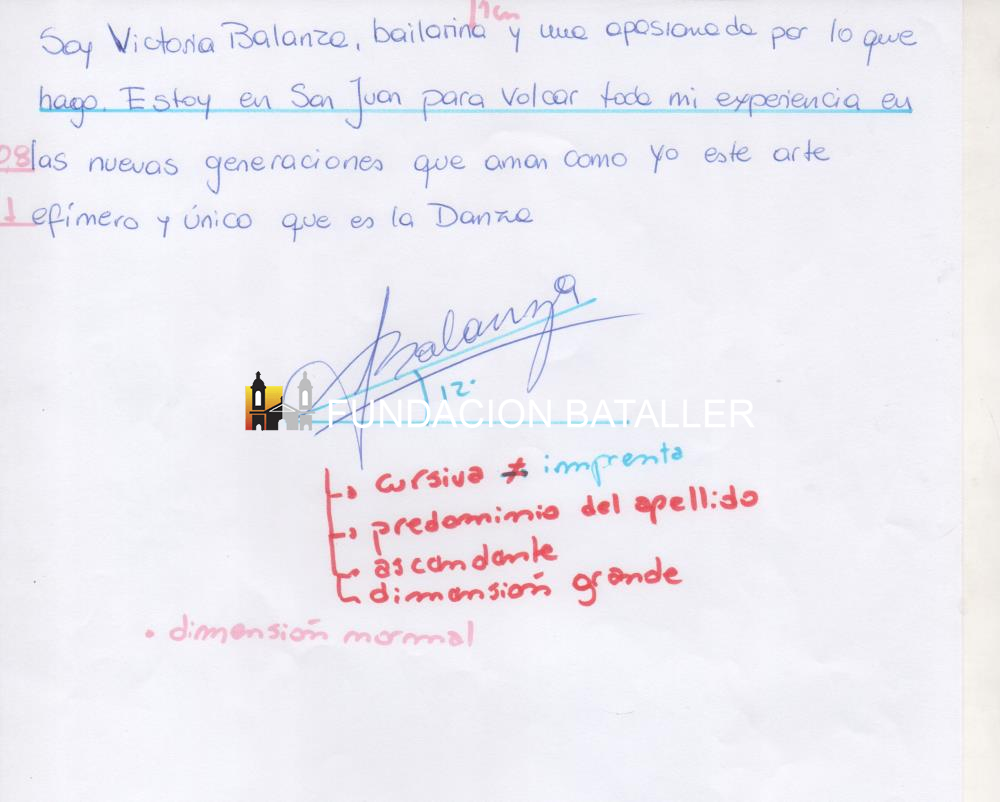 1cm
Soy Victoria Balanza, bailarina y una apasionada por lo que
hago. Estoy en San Juan para volcar toda mi experiencia en
08
las nuevas generaciones que aman como yo este arte
efímero y único que es la Danza
Balanza
12°
FUNDACION BATALLER
cursiva ≠ imprenta
predominio del apellido
ascendente
dimensión grande
• dimensión normal